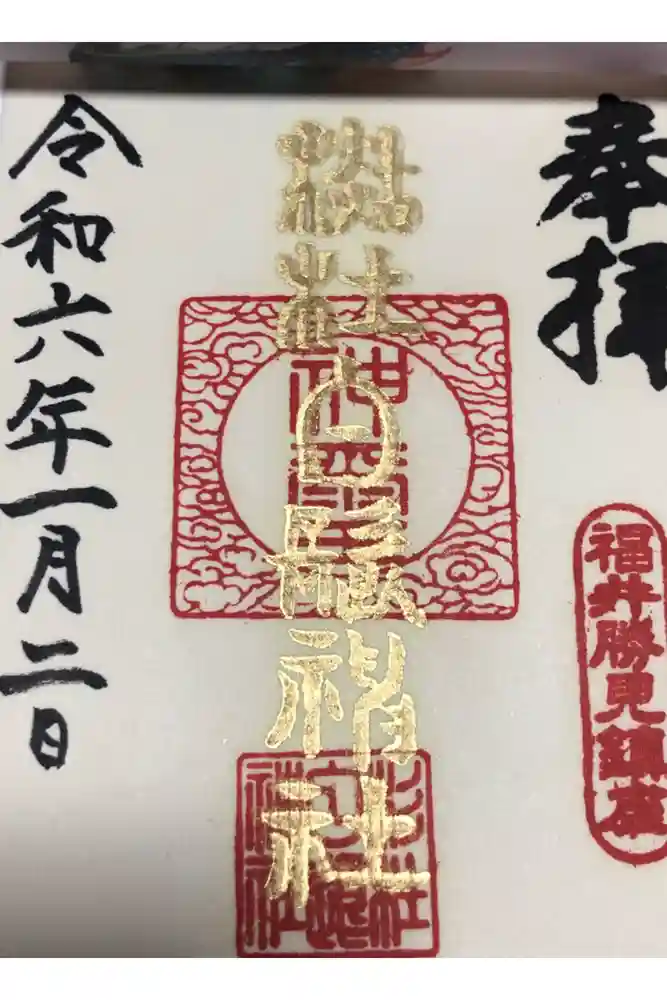 奉拝
福井勝見鎮座
白髭神社
令和六年一月二日